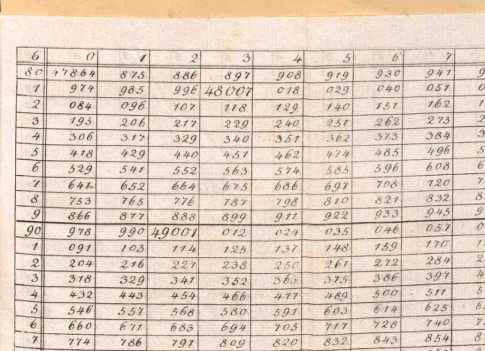 6 0 1 2 3 4 5 6 7
80 47864 875 886 897 908 919 930 941 9
1 974 985 996 48007 018 029 040 051 0
2 084 096 107 118 129 140 151 162 1
3 195 206 217 229 240 251 262 273 2
4 306 317 329 340 351 362 373 384 3
5 418 429 440 451 462 474 485 496 5
6 529 541 552 563 574 585 596 608 6
7 641 652 664 675 686 697 708 720 7
8 753 765 776 787 798 810 821 832 8
9 866 877 888 899 911 922 933 945 9
90 978 990 49001 012 024 035 046 057 0
1 091 103 114 125 137 148 159 170 1
2 204 216 227 238 250 261 272 284 2
3 318 329 341 352 363 375 386 397 4
4 432 443 454 466 477 489 500 511 5
5 546 557 568 580 591 603 614 625 6
6 660 671 683 694 705 717 728 740 7
7 774 786 797 809 820 832 843 854 8